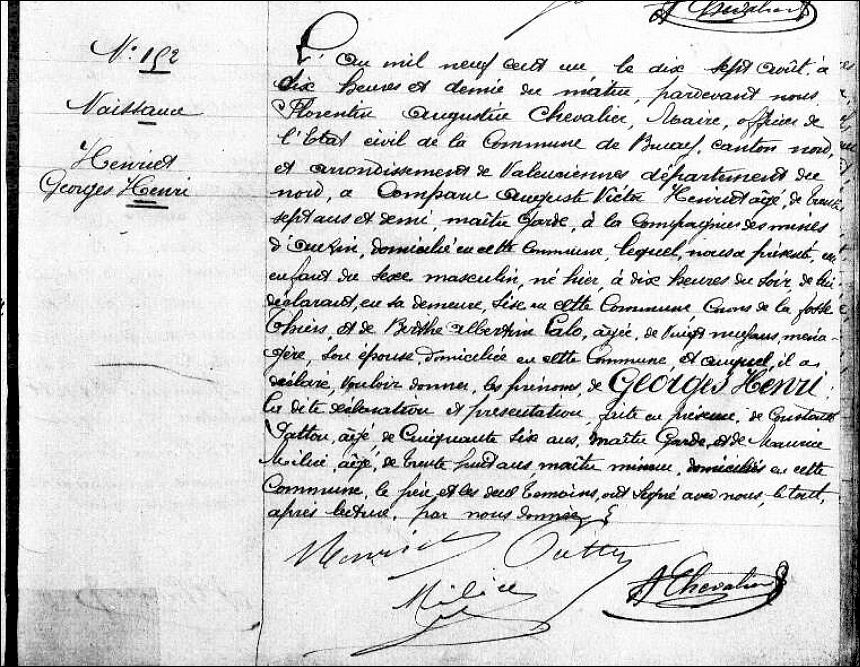 A Chevalier
N° 192
Naissance
Henriet
Georges Henri
L'an mil neuf cent un, le dix sept août, à
dix heures et demie du matin, pardevant nous
Florentin Augustin Chevalier, Maire, officier de
l'Etat civil de la Commune de Bruay, canton nord,
et arrondissement de Valenciennes département du
nord, a Comparu Auguste Victor Henriet âgé, de trente
sept ans et demi, maître Garde, à la Compagnie des mines
d'Anzin, domicilié en cette Commune, lequel, nous a présenté, un
enfant du sexe masculin, né hier, à dix heures du soir, de lui
déclarant, en sa demeure, sise en cette Commune, Corons de la fosse
Thiers, et de Berthe Albertine Lalo, âgée, de vingt neuf ans, ména-
gère, son épouse domiciliée en cette Commune et auquel, il a
déclaré, vouloir donner, les prénoms, de Georges Henri,
la dite déclaration et présentation, faite en présence, de Constant
âgé, de Cinquante six ans, maître Garde, et de Maurice
Milice, âgé, de trente huit ans maître mineur, domiciliés en cette
Commune, le père, et les deux témoins, ont signé avec nous, le tout,
après lecture, par nous donnée
Henriet
Milice
A Chevalier